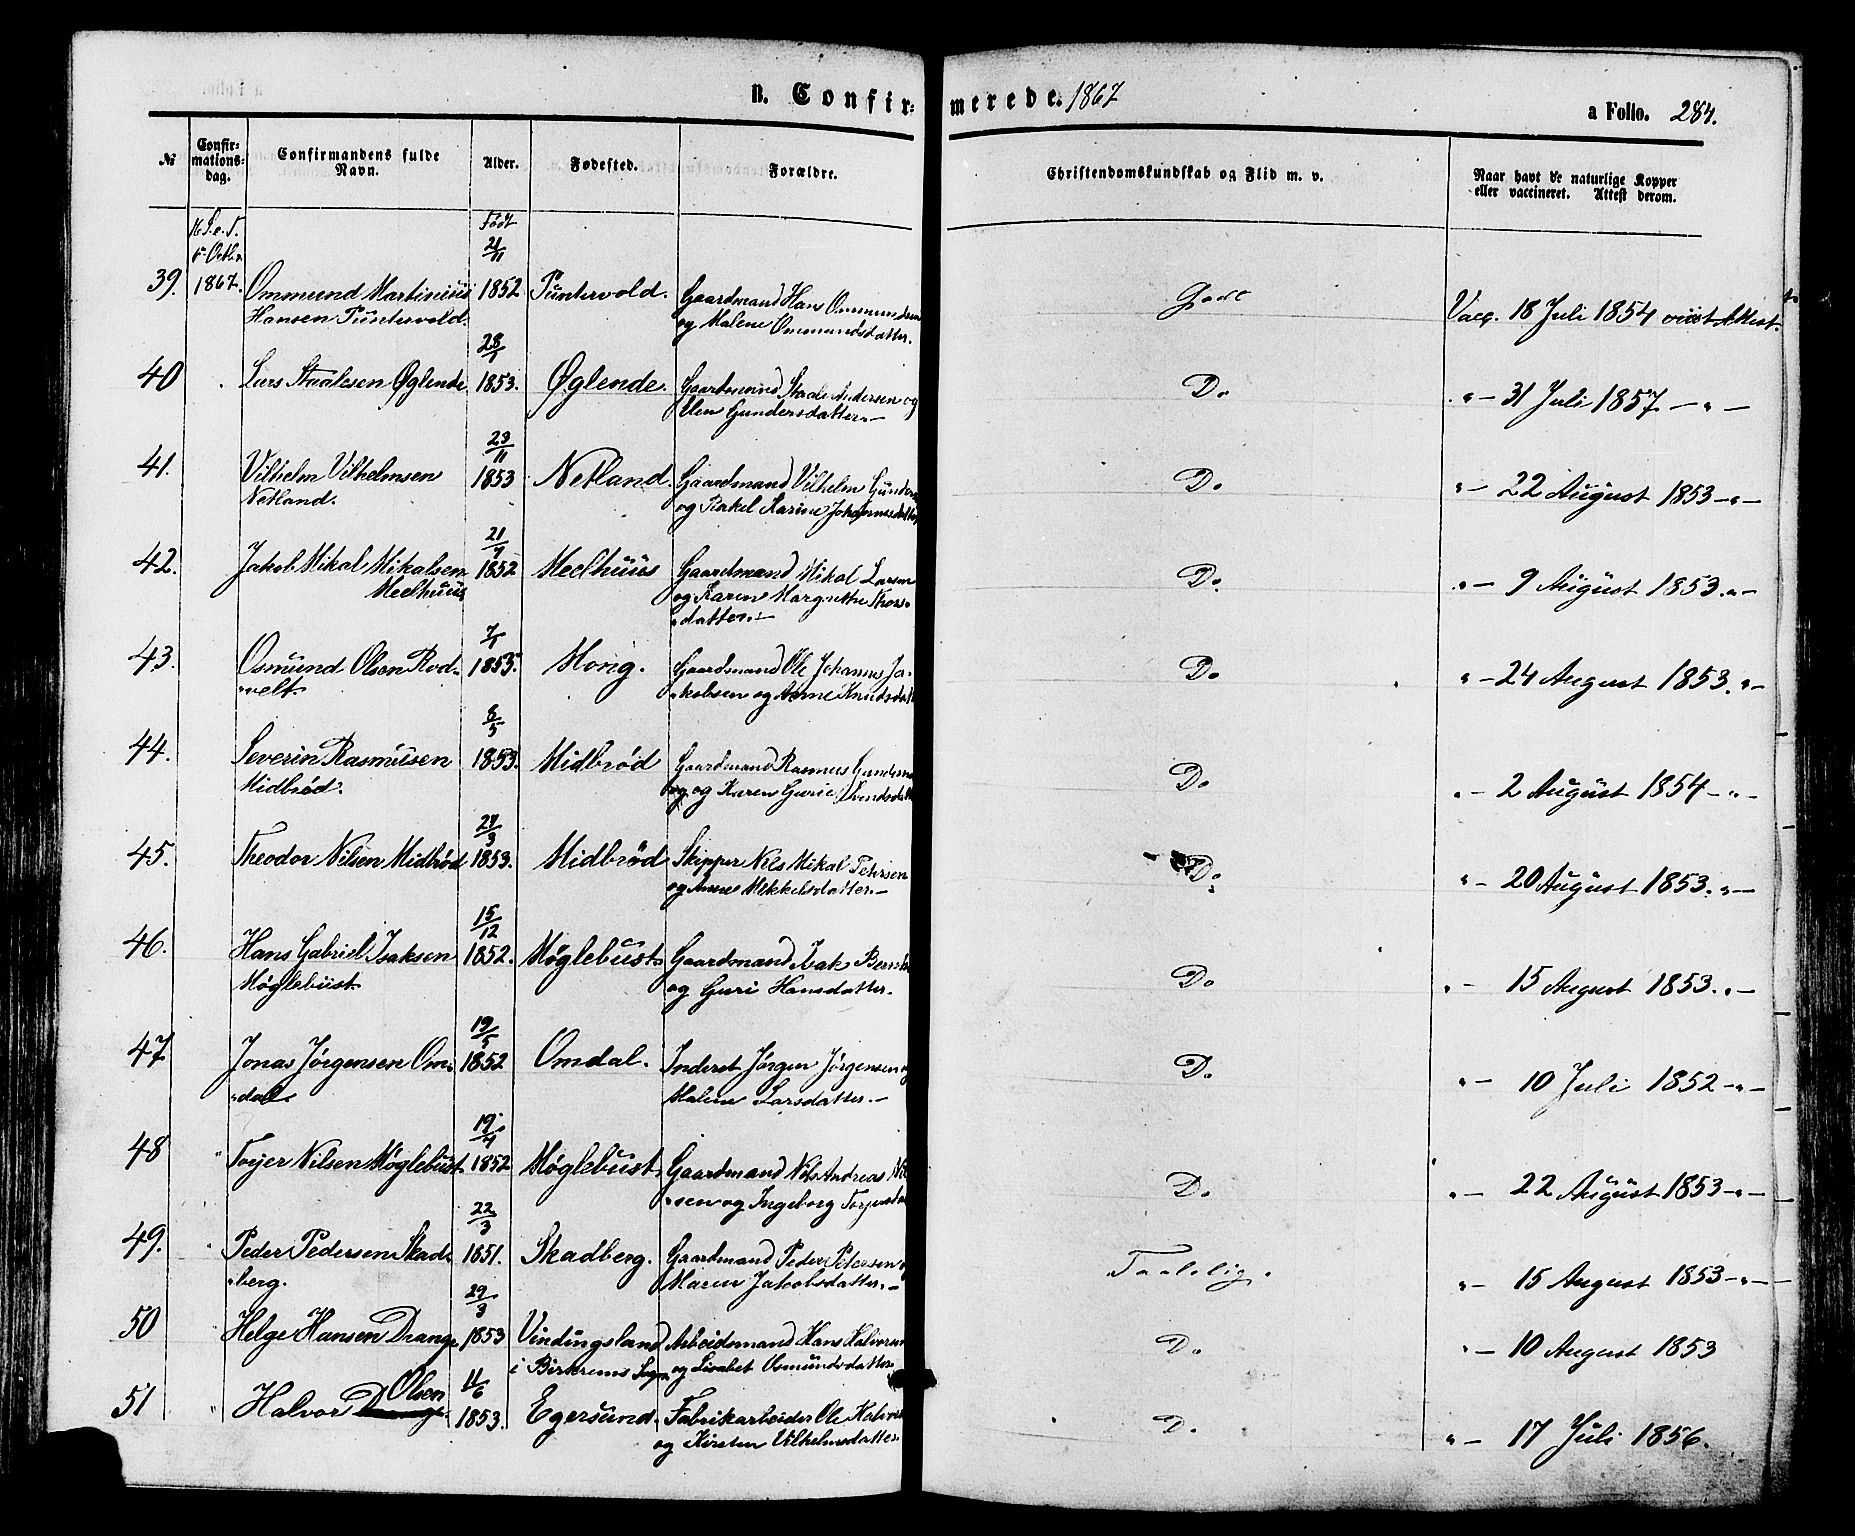 B. Confirmerede. 1867
a Folio. 284.
№ Confirmationsdag. Confirmandens fulde Navn. Alder. Fødested. Forældre. Christendomskundskab og Flid m. v. Naar havt de naturlige Kopper eller vaccineret. Attest derom.
16 S. e. T. Født
21/11
39. 1867. Ommund Martinius 1852 Puntervold. Gaardmand Hans Ommundsen Godt Vacc. 18 Juli 1854 viist Attest.
Hansen Puntervold. og Malene Ommundsdatter.
28/1
40 Lars Staalesen Øglende 1853. Øglende. Gaardmand Staale Andersen og Do „ — 31 Juli 1857 — „ —
Elen Gundersdatter. —
23/11
41. Vilhelm Vilhelmsen 1853 Netland. Gaardmand Vilhelm Do „ — 22 August 1853 — „ —
Netland. og Rakel Karine Johannesdatter
21/7
42. Jakob Mikal Mikalsen 1852 Meelhuus Gaardmand Mikal Larsen Do. „ — 9 August 1853. „ —
Meelhuus og Karen Margrethe
datter. —
7/1
43. Osmund Olsen Rod- 1853. Hovig. Gaardmand Ole Johannes Ja- Do „ — 24 August 1853. „ —
velt. kobsen og Anne Knudsdat
8/5
44. Severin Rasmusen 1853. Midbrød Gaardmand Rasmus Do „ — 2 August 1854 — „ —
Midbrød. og Karen Gurie
24/3
45. Theodor Nilsen Midbrød 1853. Midbrød Skipper Nils Mikal Petersen Do „ — 20 August 1853. „ —
og Anne Mikkelsdatter. —
15/12
46. Hans Gabriel Isaksen 1852. Møglebust Gaardmand Isak Do „ — 15 August 1853. „ —
Møglebust. og Guri Hansdatter.
19/5
47. Jonas Jørgensen Om- 1852 Omdal. Inderst Jørgen Jørgensen og Do. „ — 10 Juli 1852 — „ —
dal. Malene Larsdatter. —
19/4
48 Torjer Nilsen Møglebust 1852 Møglebust. Gaardmand Nils Andreas Nil Do. „ — 22 August 1853 — „ —
sen og Ingeborg
22/3
49. Peder Pedersen Skad- 1851. Skadberg. Gaardmand Peder Petersen Taalelig. „ — 15 August 1853 — „ —
berg. Maren Jakobsdatter. —
29/3
50 Helge Hansen Drange 1853 Vindingsland Arbeidsmand Hans Halvorsen Do „ — 10 August 1853
i Birkrems Sogn og Lisabet Osmundsdatter
11/6
51 Halvor Olsen 1853. Egersund. Fabrikarbeider Ole Do. „ — 17 Juli 1856.
og Kirsten Vilhelmsdatter.